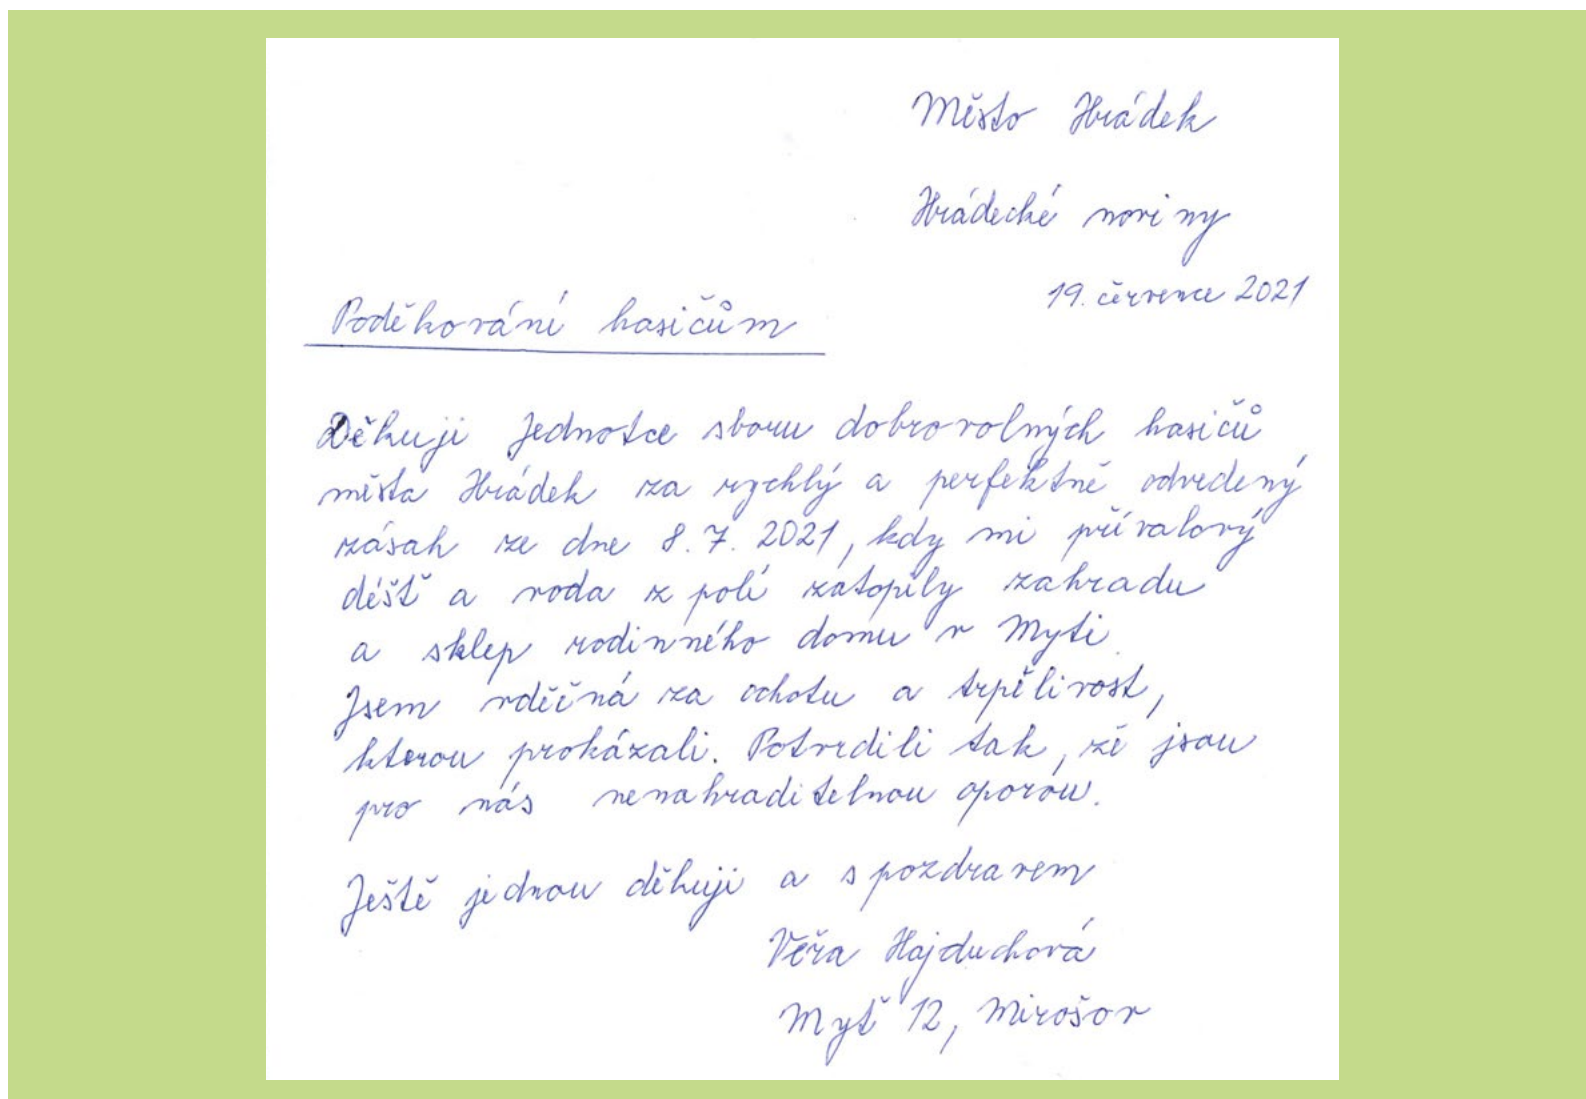 Město Hrádek
Hrádecké noviny
19. července 2021
Poděkování hasičům
Děkuji Jednotce sboru dobrovolných hasičů
města Hrádek za rychlý a perfektně odvedený
zásah ze dne 8.7.2021, kdy mi přívalový
déšť a voda z polí zatopily zahradu
a sklep rodinného domu v Myti.
Jsem vděčná za ochotu a trpělivost,
kterou prokázali. Potvrdili tak, že jsou
pro nás nenahraditelnou oporou.
Ještě jednou děkuji a s pozdravem
Věra Hajduchová
Myť 12, Mirošov